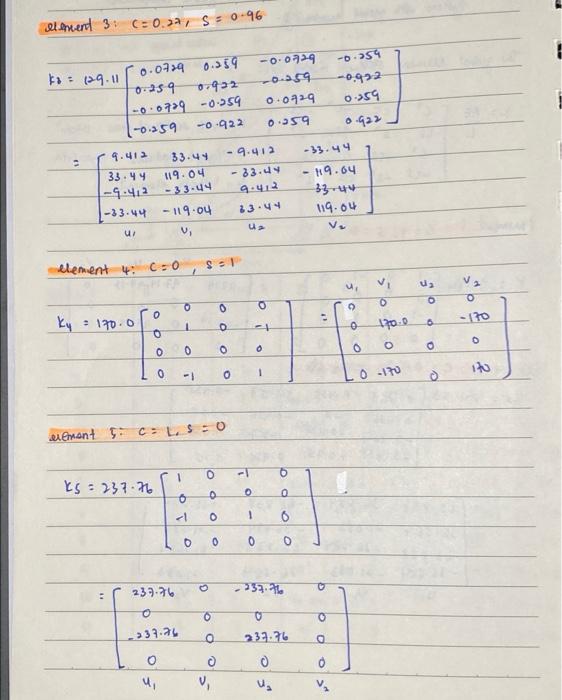 element 3: C=0.27, S = 0.96
K3 = 129.11 [ 0.0729 0.259 -0.0729 -0.259
0.259 0.922 -0.259 -0.922
-0.0729 -0.259 0.0729 0.259
-0.259 -0.922 0.259 0.922 ]
= [ 9.412 33.44 -9.412 -33.44
33.44 119.04 -33.44 -119.04
-9.412 -33.44 9.412 33.44
-33.44 -119.04 33.44 119.04 ]
u1 v1 u2 v2
element 4: C=0, S=1
u1 v1 u2 v2
K4 = 170.0 [ 0 0 0 0 = [ 0 0 0 0
0 1 0 -1 0 170.0 0 -170
0 0 0 0 0 0 0 0
0 -1 0 1 ] 0 -170 0 170 ]
element 5: C=1, S=0
K5 = 237.76 [ 1 0 -1 0
0 0 0 0
-1 0 1 0
0 0 0 0 ]
= [ 237.76 0 -237.76 0
0 0 0 0
-237.76 0 237.76 0
0 0 0 0 ]
u1 v1 u2 v2